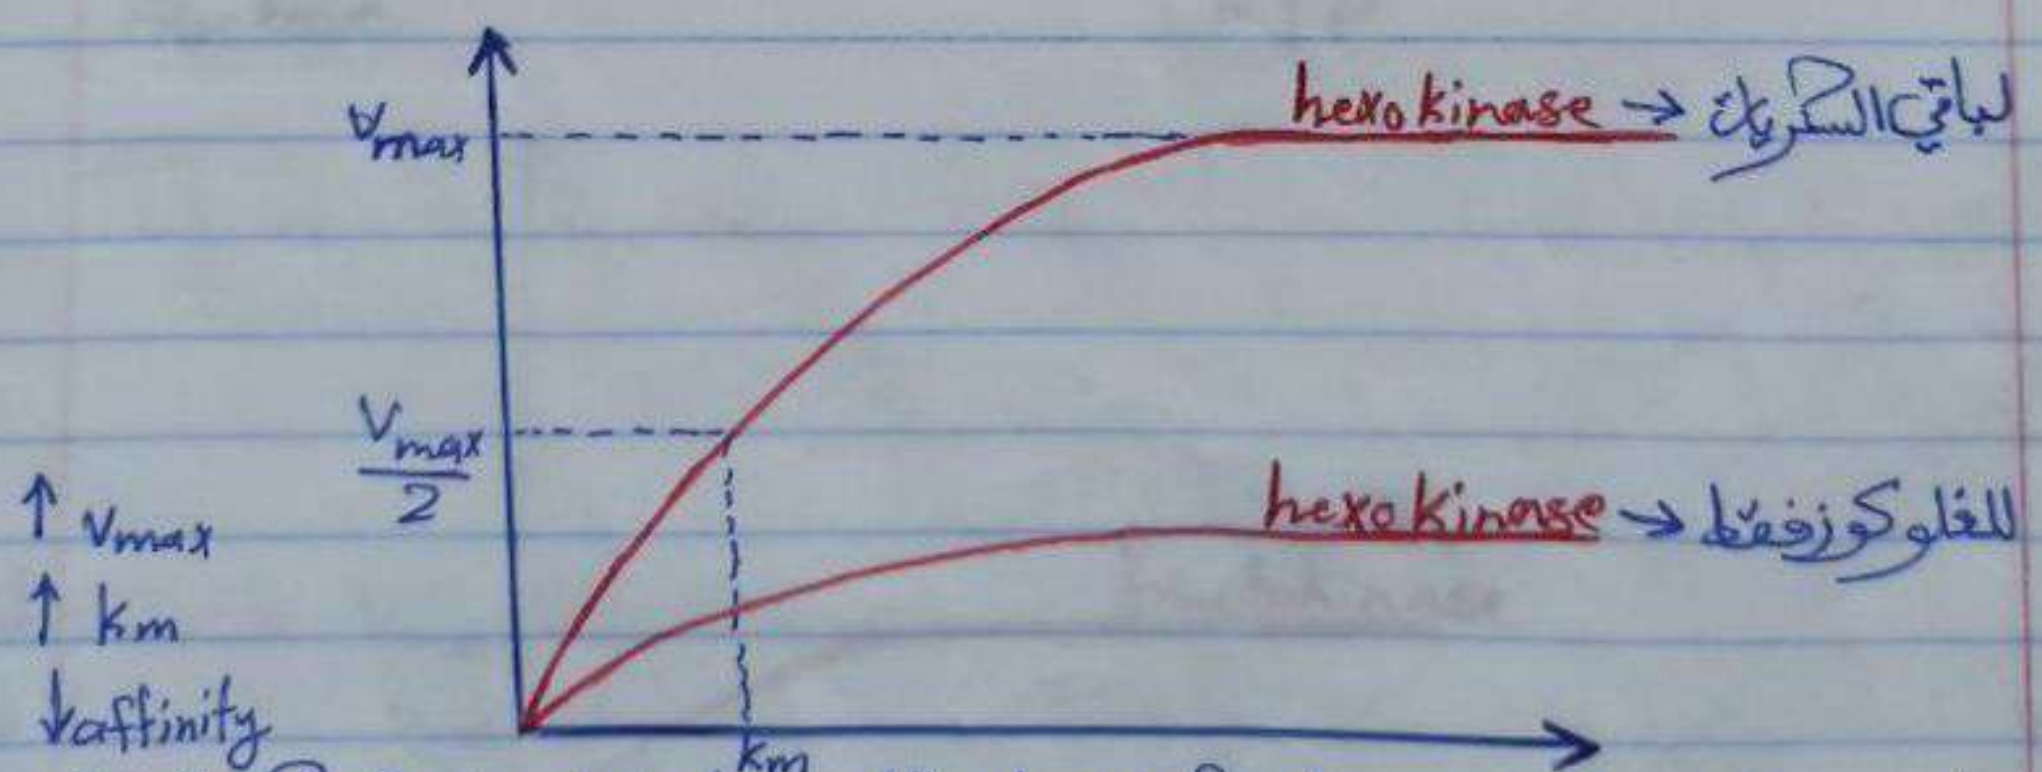 Vmax
hexokinase → لباقي السكريات
Vmax
2
hexokinase → للغلوكوز فقط
↑ Vmax
↑ km
↓ affinity
km